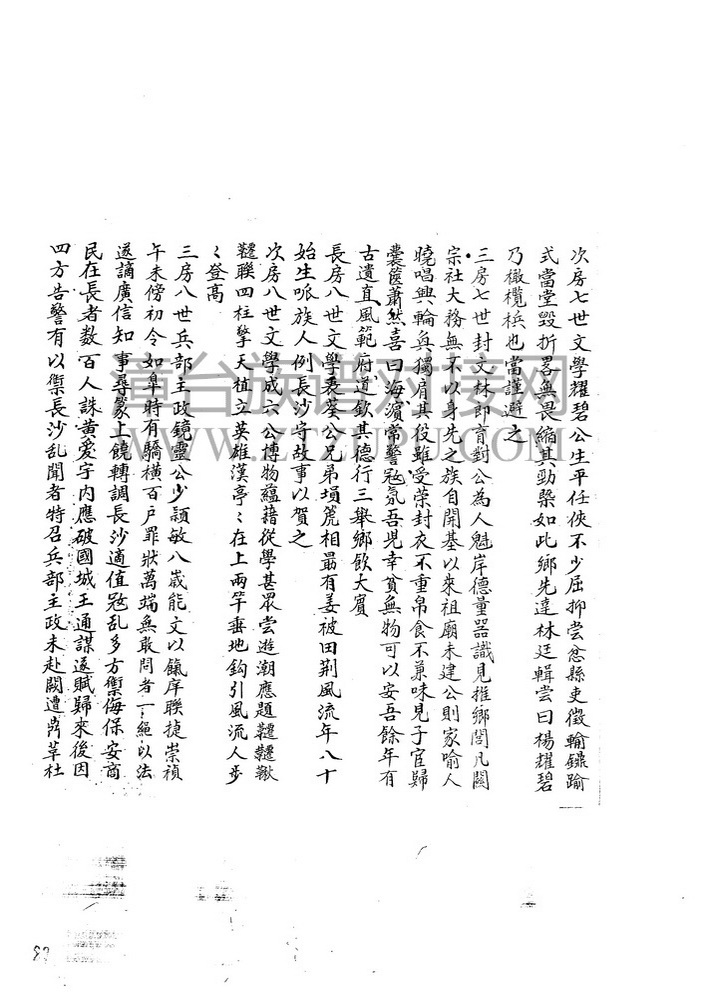 次房七世文學耀碧公生平任俠不少屈抑尝忿縣吏徵輸鐤踰
式當堂毀折畧無畏縮其勁槩如此鄉先達林廷輯尝曰楊耀碧
乃橄欖梹也當謹避之
三房七世封文林郎育對公為人魁岸德量器識見推鄉閭凡闗
宗社大務無不以身先之族自開基以來祖廟未建公則家喻人
曉唱興輪奐獨肩其役雖受荣封衣不重帛食不兼味見子宦歸
囊篋蕭然喜曰海濵常警冦氛吾児幸貧無物可以安吾餘年有
古遺直風範府道欽其德行三舉鄉飲大賓
長房八世文學裹葵公兄弟塤箎相最有姜被田荆風流年八十
始生哌族人例長沙守故事以賀之
次房八世文學成六公博物蘊藉從學甚眾尝遊潮應題韆韆鞦
韆聯四柱擎天植立英雄漢亭〻在上兩竿垂地鈎引風流人步
〻登高
三房八世兵部主政鏡靈公少頴敏八嵗能文以餼庠聯捷崇禎
午未傍初令如臯特有驕橫百戶罪狀萬端無敢問者一〻絕以法
遂謫廣信知事尋蒙上饒轉調長沙適值冦乱多方禦侮保安商
民在長者数百人誅黄爱宇内應破國城王通謀遂賦歸來後因
四方告警有以禦長沙乱聞者特召兵部主政未赴闕遭嵜草杜
章台族谱对接网
WWW.ZTZUPU.COM
83